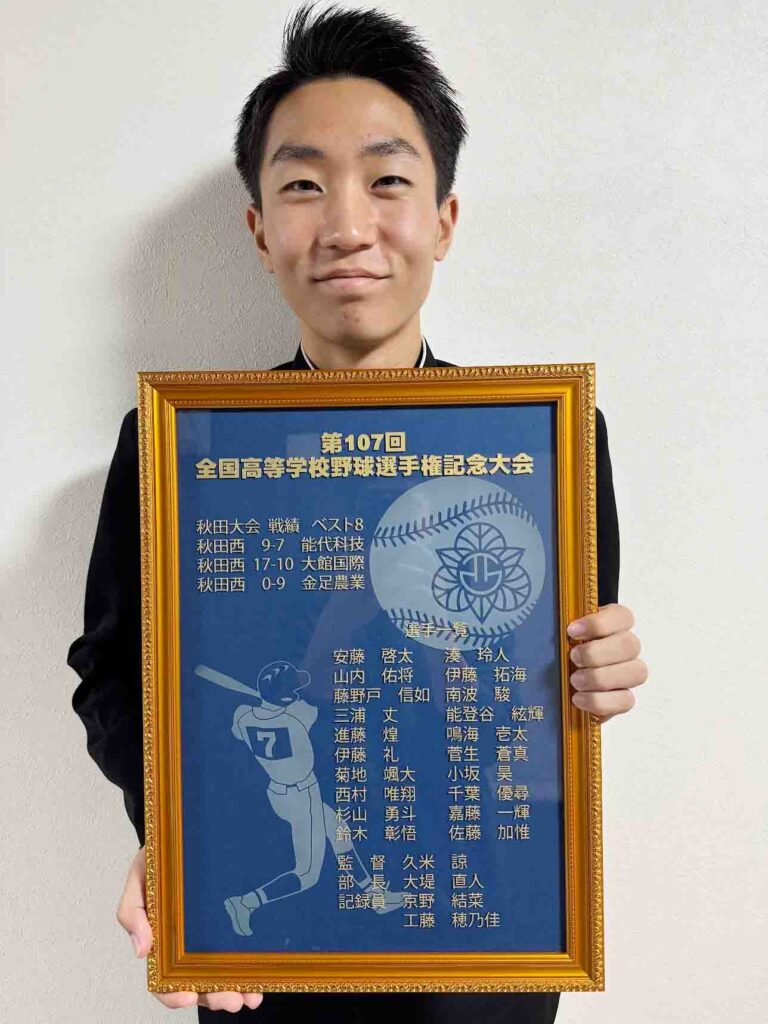 第107回
全国高等学校野球選手権記念大会
秋田大会 戦績 ベスト8
秋田西 9-7 能代科技
秋田西 17-10 大館国際
秋田西 0-9 金足農業
選手一覧
安藤 啓太 湊 玲人
山内 佑将 伊藤 拓海
藤野戸 信如 南波 駿
三浦 丈 能登谷 絃輝
進藤 煌 鳴海 壱太
伊藤 礼 菅生 蒼真
菊地 颯大 小坂 昊
西村 唯翔 千葉 優尋
杉山 勇斗 嘉藤 一輝
鈴木 彰悟 佐藤 加惟
監 督 久米 諒
部 長 大堤 直人
記録員 京野 結菜
工藤 穂乃佳
7